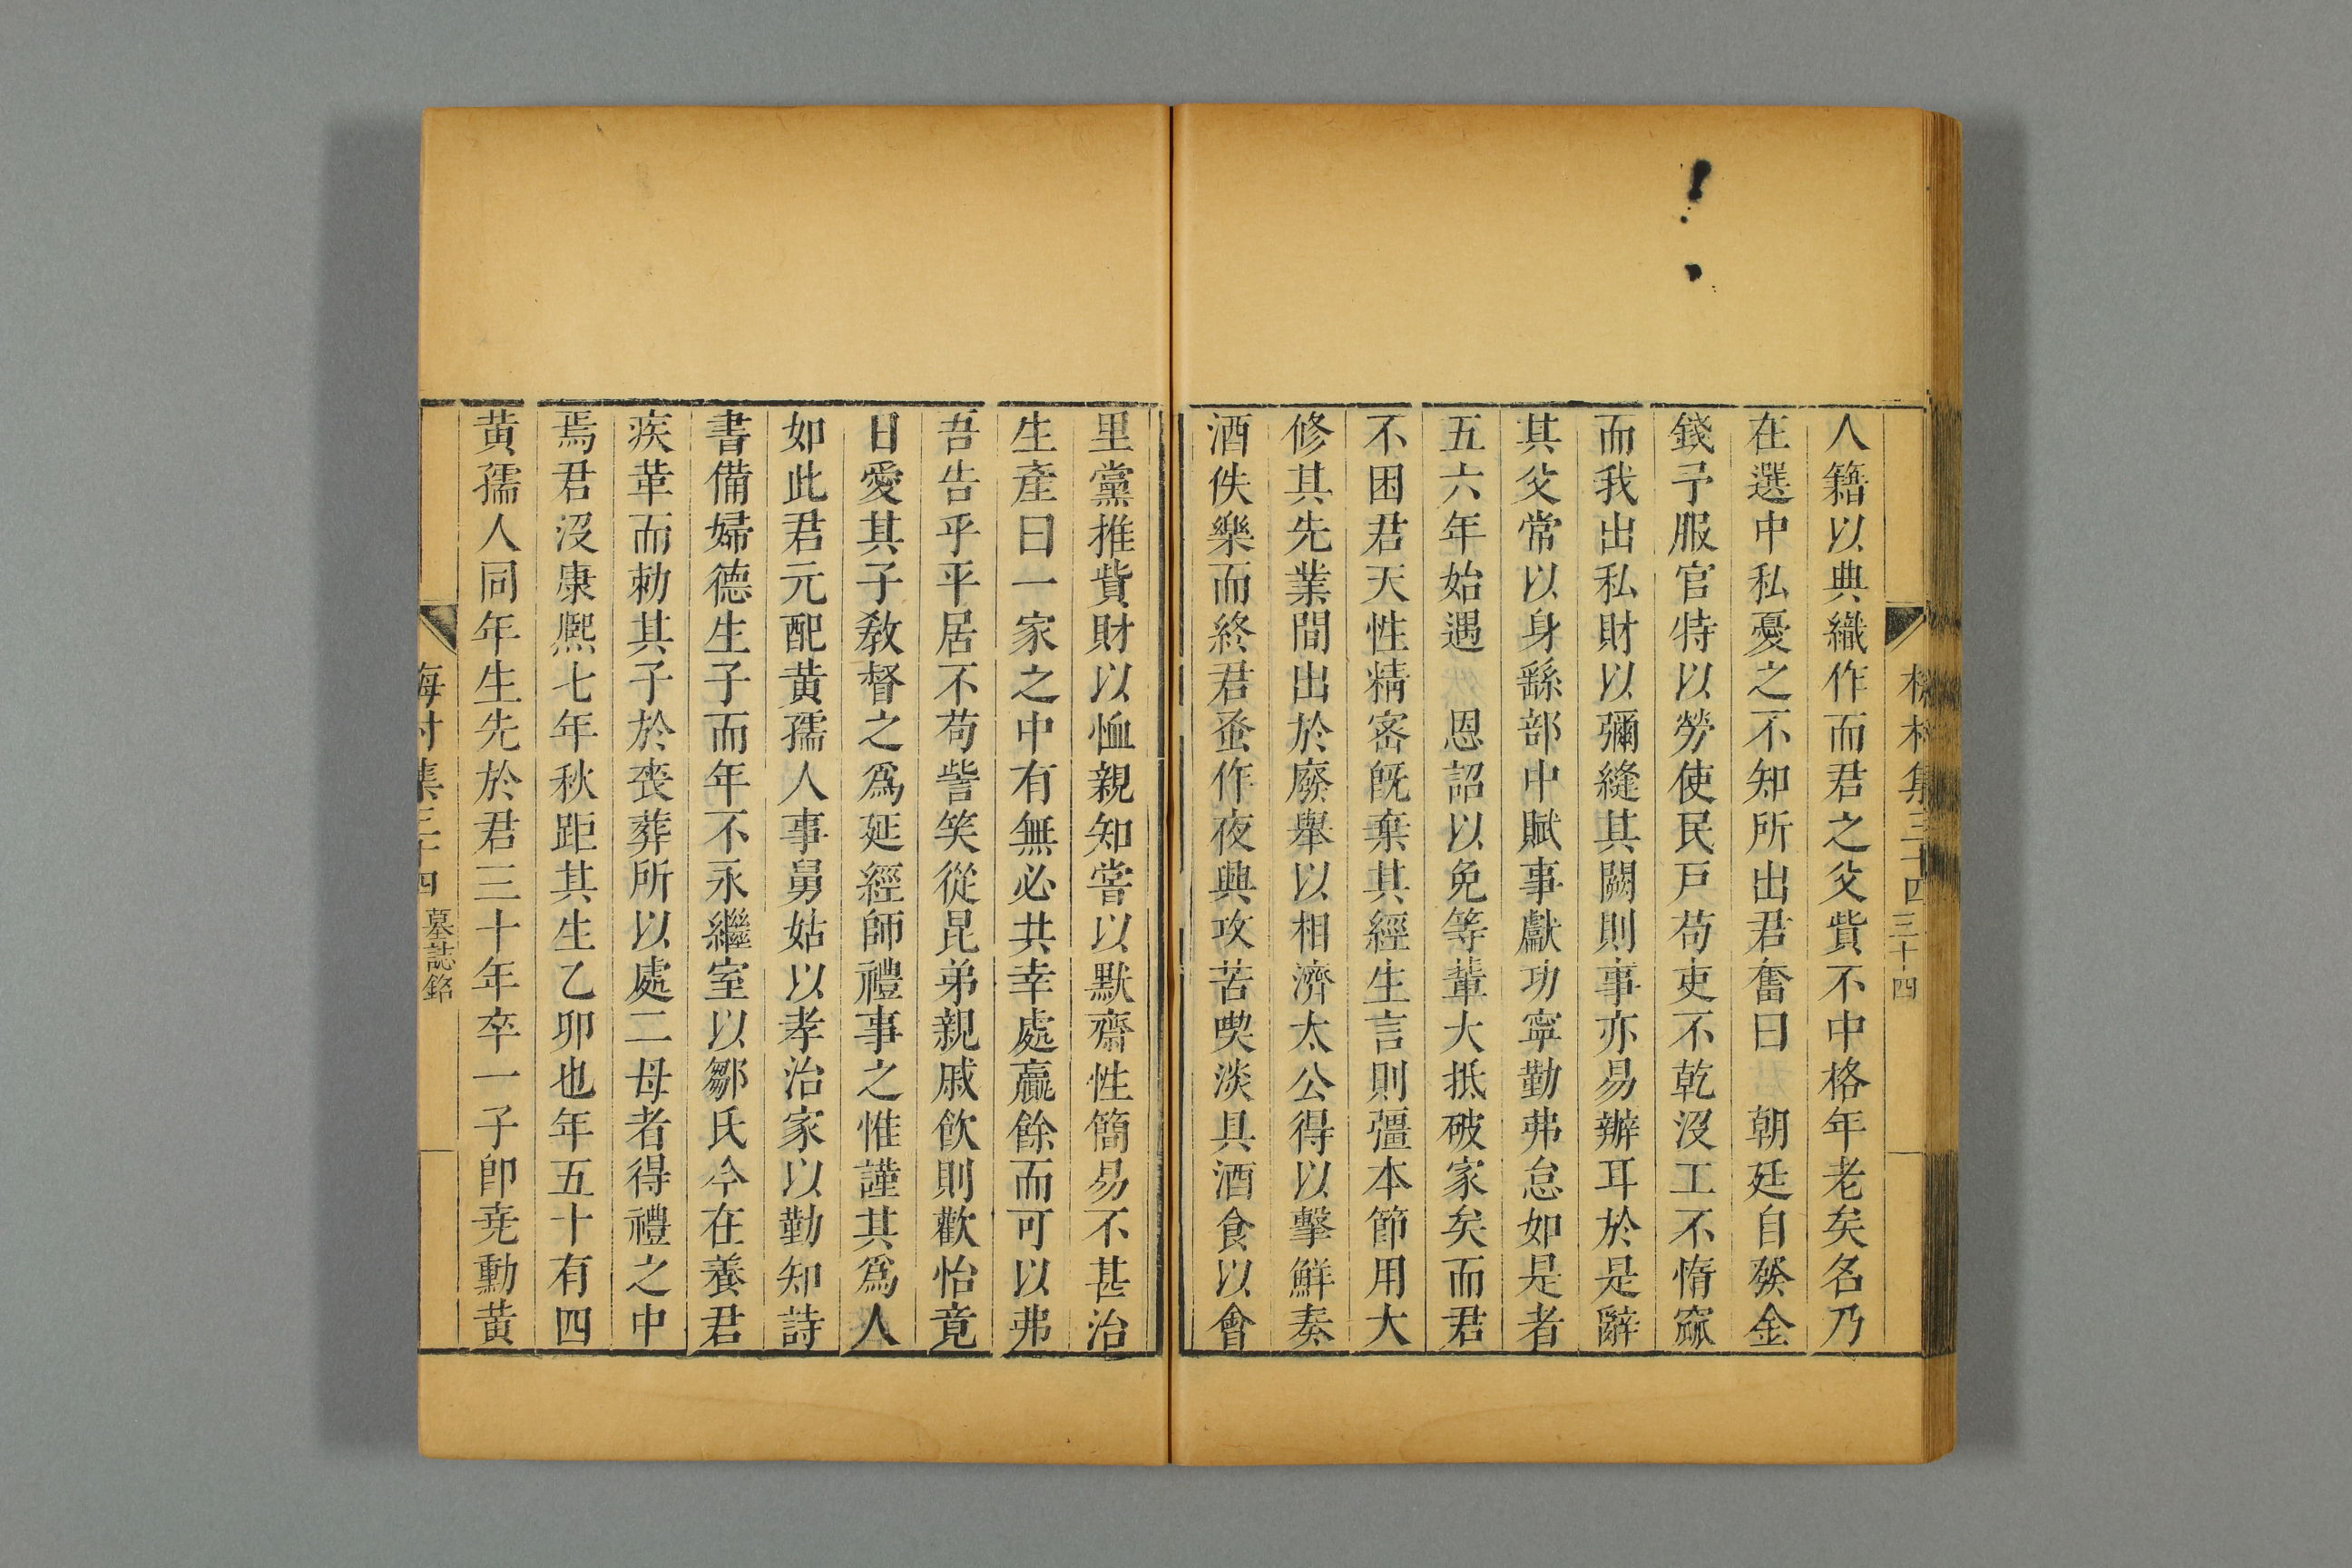 人籍以典織作而君之父貲不中格年老矣名乃
在選中私憂之不知所出君奮曰 朝廷自發金
錢予服官特以勞使民戸苟吏不乾沒工不惰窳
而我出私財以彌縫其闕則事亦易辦耳於是辭
其父常以身繇部中賦事獻功寧勤弗怠如是者
五六年始遇 恩詔以免等輩大抵破家矣而君
不困君天性精密旣棄其經生言則彊本節用大
修其先業間出於廢舉以相濟太公得以擊鮮奏
酒佚樂而終君蚤作夜興攻苦喫淡具酒食以會
里黨推貲財以恤親知嘗以默齋性簡易不甚治
生產曰一家之中有無必共幸處贏餘而可以弗
吾告乎平居不苟訾笑從昆弟親戚飮則歡怡竟
日愛其子敎督之爲延經師禮事之惟謹其爲人
如此君元配黃孺人事舅姑以孝治家以勤知詩
書備婦德生子而年不永繼室以鄒氏今在養君
疾革而勑其子於喪葬所以處二母者得禮之中
焉君沒康熙七年秋距其生乙卯也年五十有四
黃孺人同年生先於君三十年卒一子卽堯勳黃
梅村集三十四 墓誌銘
三十四